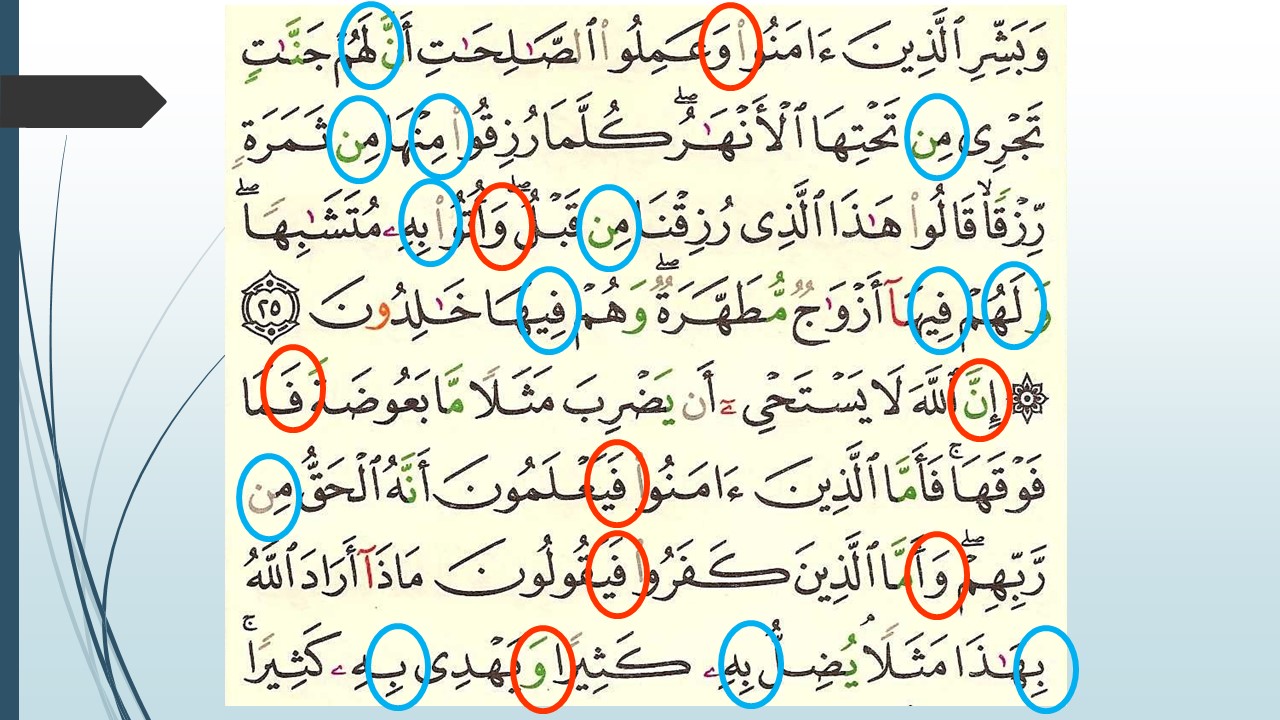 وَبَشِّرِ ٱلَّذِينَ ءَامَنُوا۟ وَعَمِلُوا۟ ٱلصَّـٰلِحَـٰتِ أَنَّ لَهُمْ جَنَّـٰتٍ
تَجْرِى مِن تَحْتِهَا ٱلْأَنْهَـٰرُ ۖ كُلَّمَا رُزِقُوا۟ مِنْهَا مِن ثَمَرَةٍ
رِّزْقًا ۙ قَالُوا۟ هَـٰذَا ٱلَّذِى رُزِقْنَا مِن قَبْلُ ۖ وَأُتُوا۟ بِهِۦ مُتَشَـٰبِهًا ۖ
وَلَهُمْ فِيهَآ أَزْوَٰجٌ مُّطَهَّرَةٌ ۖ وَهُمْ فِيهَا خَـٰلِدُونَ ٢٥
۞ إِنَّ ٱللَّهَ لَا يَسْتَحْىِۦٓ أَن يَضْرِبَ مَثَلًا مَّا بَعُوضَةً فَمَا
فَوْقَهَا ۚ فَأَمَّا ٱلَّذِينَ ءَامَنُوا۟ فَيَعْلَمُونَ أَنَّهُ ٱلْحَقُّ مِن
رَّبِّهِمْ ۖ وَأَمَّا ٱلَّذِينَ كَفَرُوا۟ فَيَقُولُونَ مَاذَآ أَرَادَ ٱللَّهُ
بِهَـٰذَا مَثَلًا ۘ يُضِلُّ بِهِۦ كَثِيرًا وَيَهْدِى بِهِۦ كَثِيرًا ۚ